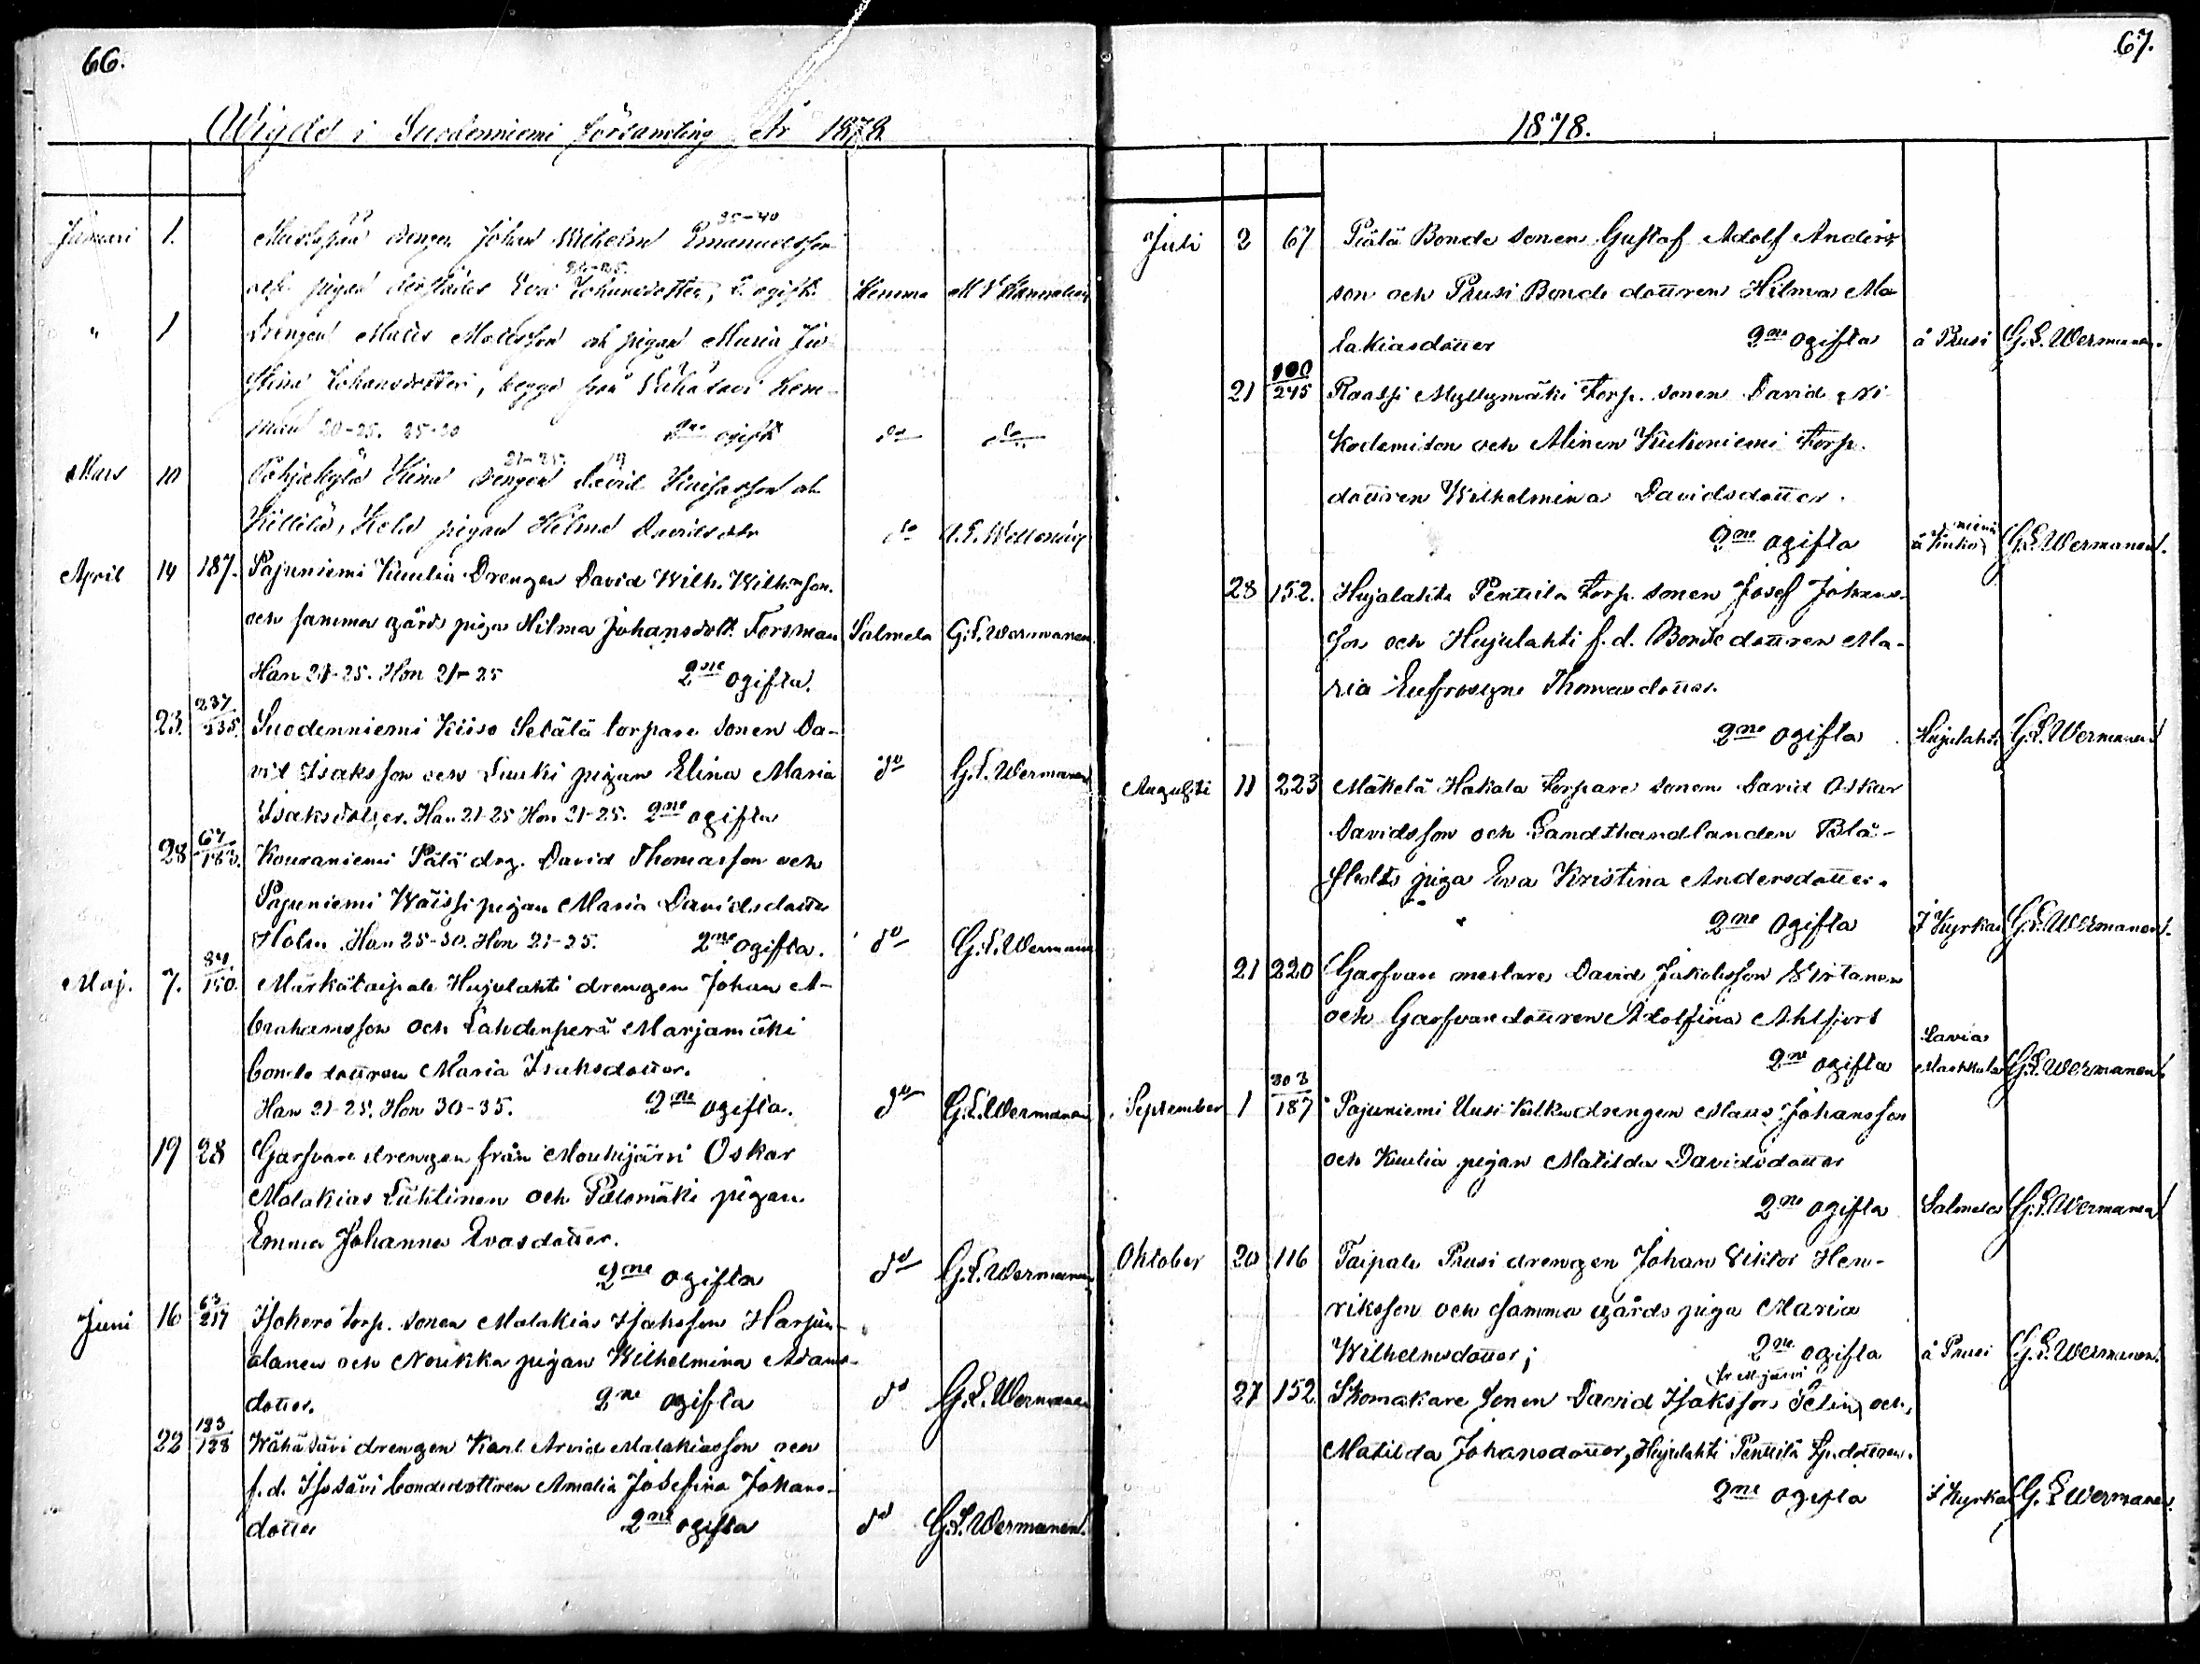 66.
Wigde i Suodenniemi församling År 1878
Januari 1. drengen Johan Wilhelm Emanuelsson 35-40
och pigan derstädes Eva Johansdotter, 2. ogift. Hemma
" 1 Drengen Matts Mattsson och pigan Maria
Stina Johansdotter, begge från Wähätavi Hem-
man 20-25. 25-30 2ne ogift do do
Mars 10 Pohjakylä drengen David och 21-25
pigan Hilma Davidsdotr do
April 14 187. Pajuniemi Kuulia Drengen David Wilh. Wilh:sson.
och samma gårds piga Hilma Johansdott. Forsman Salmela G.L.Wermanen.
Han 21-25. Hon 21-25 2ne ogifta.
23. 237/235. Suodenniemi Kiiso Setälä torpare sonen Da-
vid Isaksson och Luuki pigan Elina Maria do G.L.Wermanen
Isaksdotter. Han 21-25 Hon 21-25. 2ne ogifta
28 67/183. Kouraniemi Pälä drg. David Thomasson och
Pajuniemi Wäissi pigan Maria Davidsdotter
Holm Han 25-30. Hon 21-25. 2ne ogifta. do G.L.Wermanen
Maj. 7. 84/150. Märkätaipale Hujulahti drengen Johan A-
brahamsson och Lahdenperä Marjamäki
bonde dottren Maria Isaksdotter.
Han 21-25. Hon 30-35. 2ne ogifta. do G.L.Wermanen
19 28 Garfvare drengen från Mouhijärvi Oskar
Malakias Lähtinen och Palomäki pigan
Emma Johanna Evasdotter.
2ne ogifta do G.L.Wermanen
Juni 16 63/217 Isokero torp. sonen Malakias Isaksson Harjun-
alanen och Noukka pigan Wilhelmina Adams-
dotter. 2ne ogifta do G.L.Wermanen
22 123/128 Wähäsävi drengen Karl Arvid Malakiasson och
f.d. Isosävi bondedottren Amalia Josefina Johans-
dotter 2ne ogifta do G.L.Wermanen.
67.
1878.
Juli 2 67 Päälä Bonde sonen Gustaf Adolf Anders-
son och Prusi Bonde dottren Hilma Ma-
lakiasdotter 2ne ogifta å Prusi G.L.Wermanen.
21 100/245 Myllymäki torp. sonen David Ni-
kodemison och Alinen Kukoniemi torp.
dottren Wilhelmina Davidsdotter.
2ne ogifta å Kukoniemi G.L.Wermanen.
28 152. Hujalahti Penttilä torp. sonen Josef Johans-
son och Hujulahti f.d. Bonde dottren Ma-
ria Eufrosyne Thomasdotter.
2ne ogifta Hujulahti G.L.Wermanen
Augusti 11 223 Mäkelä Hakala torpare sonen David Oskar
Davidsson och Landthandlanden Blå-
piga Eva Kristina Andersdotter.
2ne ogifta I Kyrkan G.L.Wermanen.
21 220 Garfvare mestare David Jakobsson Wirtanen
och Garfvaredottren Adolfina Ahlfors
2ne ogifta Lavia G.L.Wermanen.
September 1 303/187 Pajuniemi Uusi Kulku drengen Johansson
och Kuulia pigan Matilda Davidsdotter
2ne ogifta Salmela G.L.Wermanen
Oktober 20 116 Taipale Prusi drengen Johan Viktor Hen-
riksson och samma gårds piga Maria
Wilhelmsdotter; 2ne ogifta å Prusi G.L.Wermanen.
27 152 Skomakare sonen David Isaksson Pelin, och
Matilda Johansdotter, Hujulahti Penttilä Tp. dottren.
2ne ogifta I Kyrkan G.L.Wermanen.